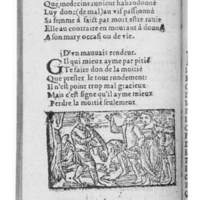 Que, medecins auoient habandonné
Luy dont (de mal) au vif passionné
Sa femme a faict par mort estre rauie
Elle au contraire en mourant à donné
A son mary occasi ou de vie.
¶ D'vn mauuais rendeur.
Gil qui mieux ayme par pitié
Te faire don de la moitié
Que prester le tout rendement:
Il n'est point trop mal gracieux
Mais c'est signe qu'il ayme mieux
Perdre la moitié seulement.